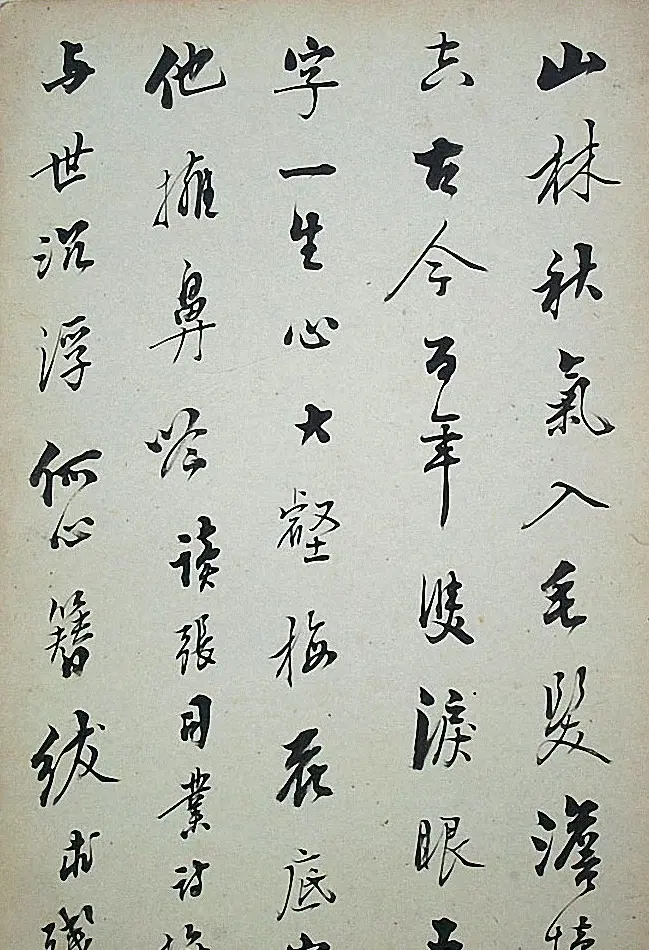 山林秋氣入毛髮澹
古今百年雙淚眼
字一生心大壑梅花底
他擁鼻吟讀張司業詩
与世沉浮何心簪紱求